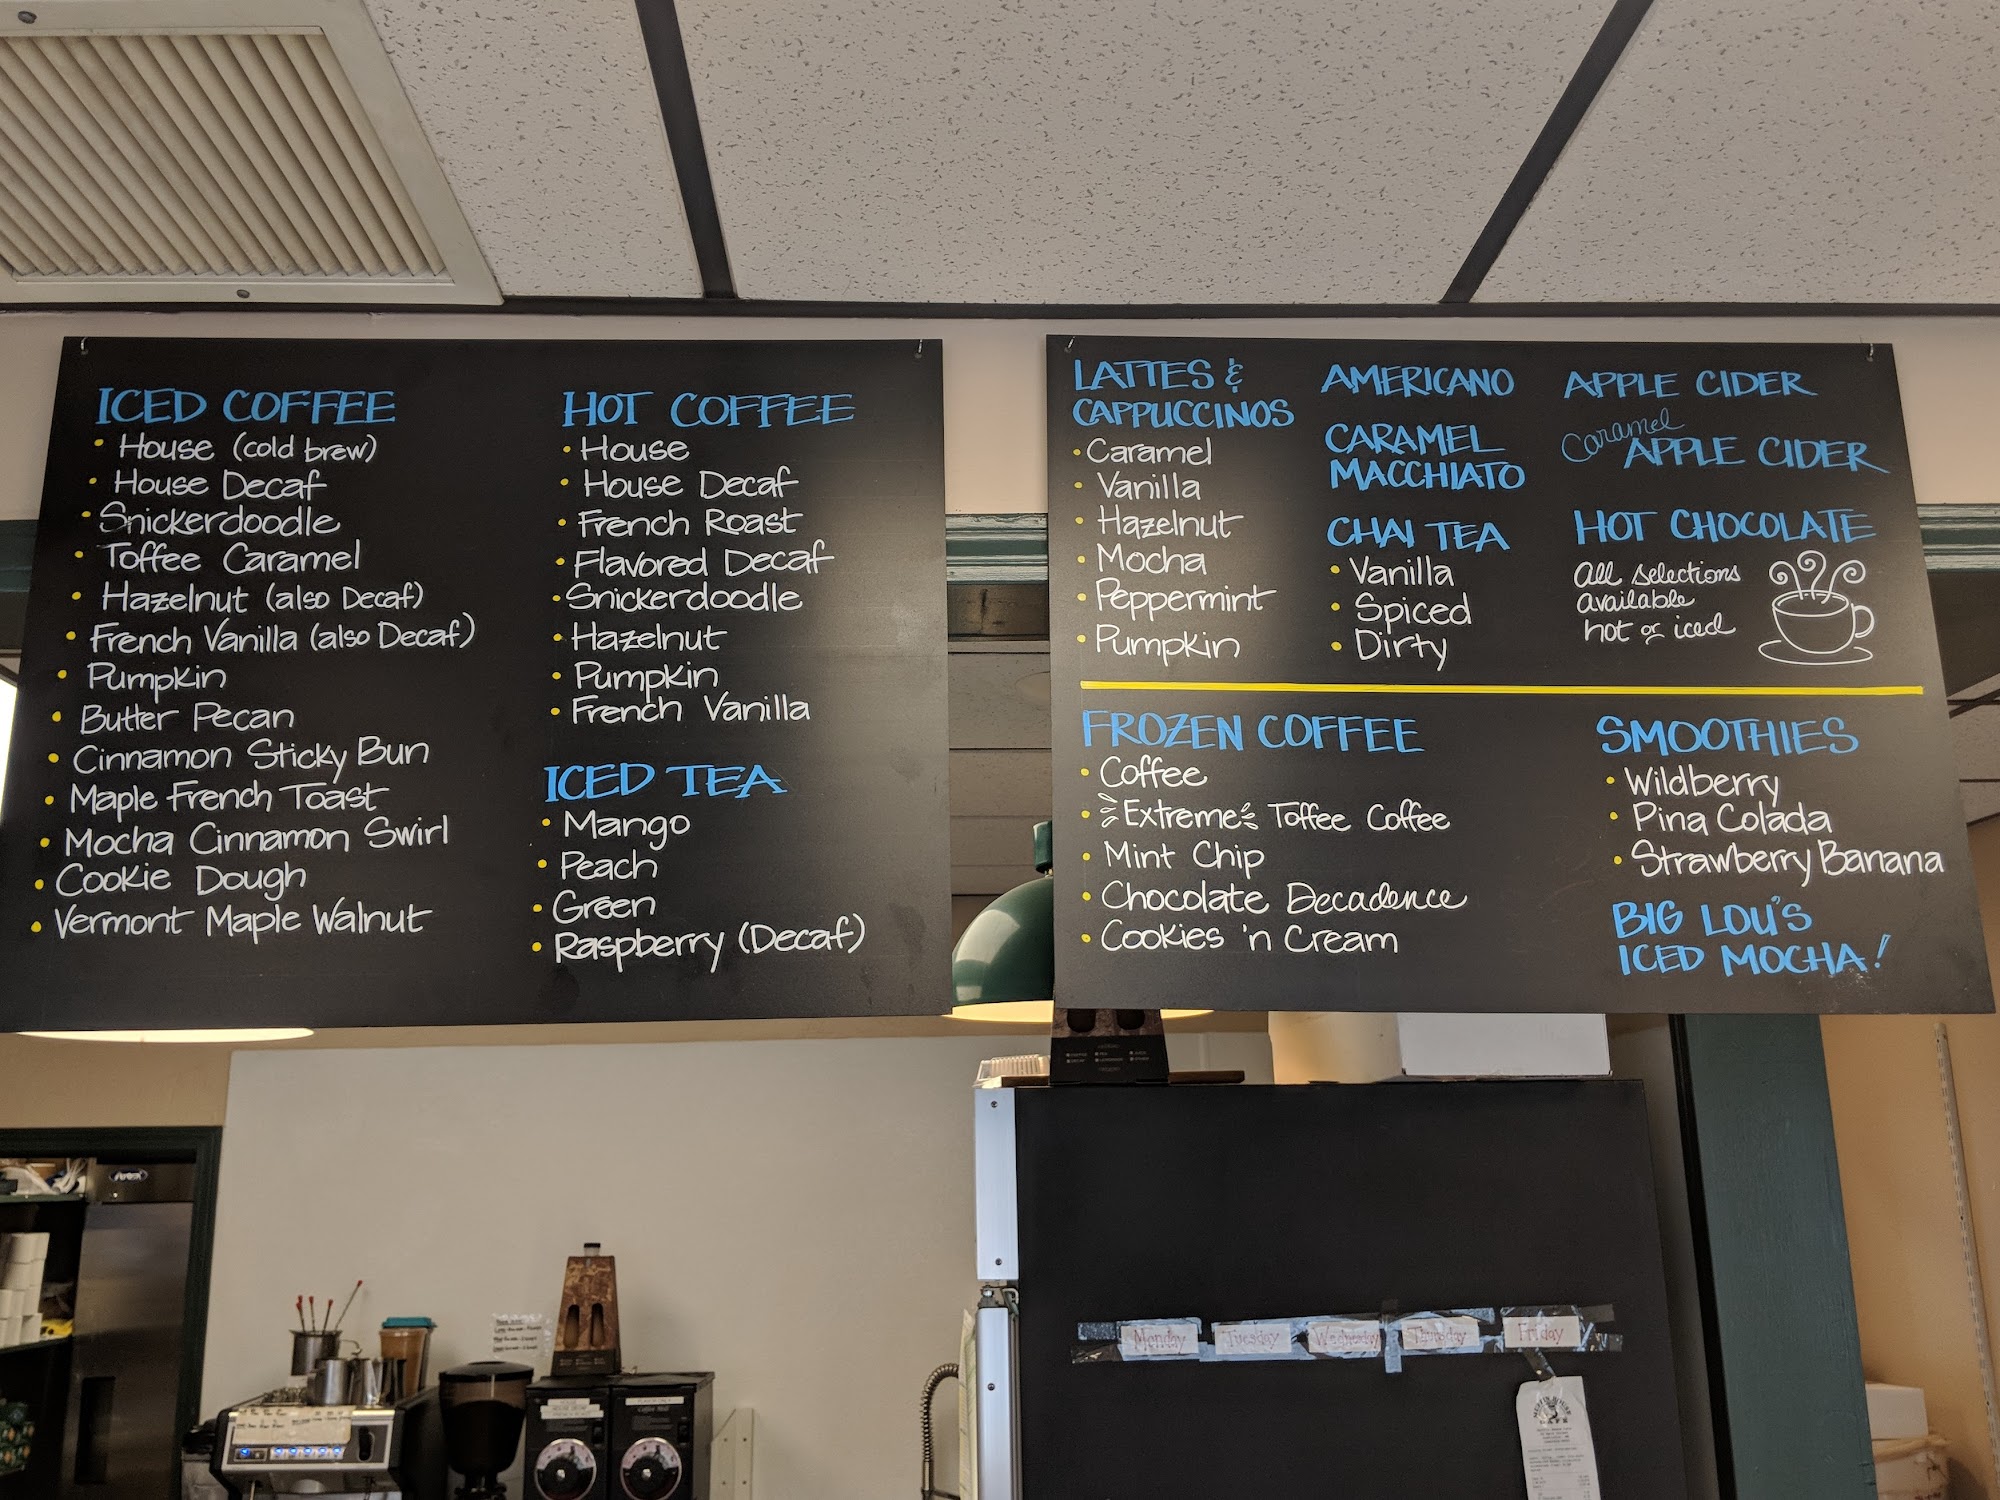 ICED COFFEE
House (cold brew)
House Decaf
Snickerdoodle
Toffee Caramel
Hazelnut (also Decaf)
French Vanilla (also Decaf)
Pumpkin
Butter Pecan
Cinnamon Sticky Bun
Maple French Toast
Mocha Cinnamon Swirl
Cookie Dough
Vermont Maple Walnut
HOT COFFEE
House
House Decaf
French Roast
Flavored Decaf
Snickerdoodle
Hazelnut
Pumpkin
French Vanilla
ICED TEA
Mango
Peach
Green
Raspberry (Decaf)
LATTES &
CAPPUCCINOS
Caramel
Vanilla
Hazelnut
Mocha
Peppermint
Pumpkin
AMERICANO
CARAMEL
MACCHIATO
CHAI TEA
Vanilla
Spiced
Dirty
APPLE CIDER
Caramel
APPLE CIDER
HOT CHOCOLATE
All selections
available
hot or iced
FROZEN COFFEE
Coffee
Extreme Toffee Coffee
Mint Chip
Chocolate Decadence
Cookies 'n Cream
SMOOTHIES
Wildberry
Pina Colada
Strawberry Banana
BIG LOU'S
ICED MOCHA!
Monday Tuesday Wednesday Thursday Friday